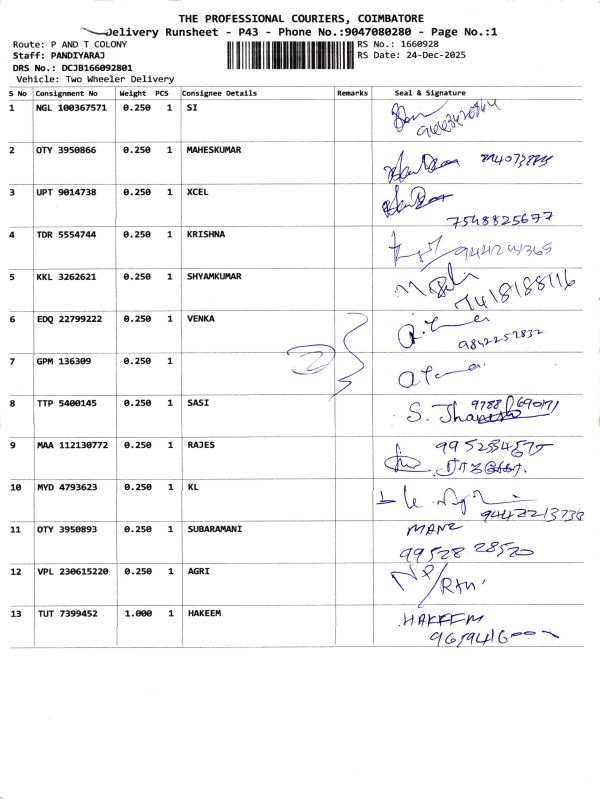 THE PROFESSIONAL COURIERS, COIMBATORE
Delivery Runsheet - P43 - Phone No.:9047080280 - Page No.:1
Route: P AND T COLONY RS No.: 1660928
Staff: PANDIYARAJ RS Date: 24-Dec-2025
DRS No.: DCJB166092801
Vehicle: Two Wheeler Delivery
S No Consignment No Weight PCS Consignee Details Remarks Seal & Signature
1 NGL 100367571 0.250 1 SI
2 OTY 3950866 0.250 1 MAHESKUMAR
3 UPT 9014738 0.250 1 XCEL
7548825677
4 TDR 5554744 0.250 1 KRISHNA
5 KKL 3262621 0.250 1 SHYAMKUMAR
7418188116
6 EDQ 22799222 0.250 1 VENKA
9842257832
7 GPM 136309 0.250 1
8 TTP 5400145 0.250 1 SASI
9 MAA 112130772 0.250 1 RAJES
10 MYD 4793623 0.250 1 KL
11 OTY 3950893 0.250 1 SUBARAMANI
99528 28520
12 VPL 230615220 0.250 1 AGRI
13 TUT 7399452 1.000 1 HAKEEM HAKEEM